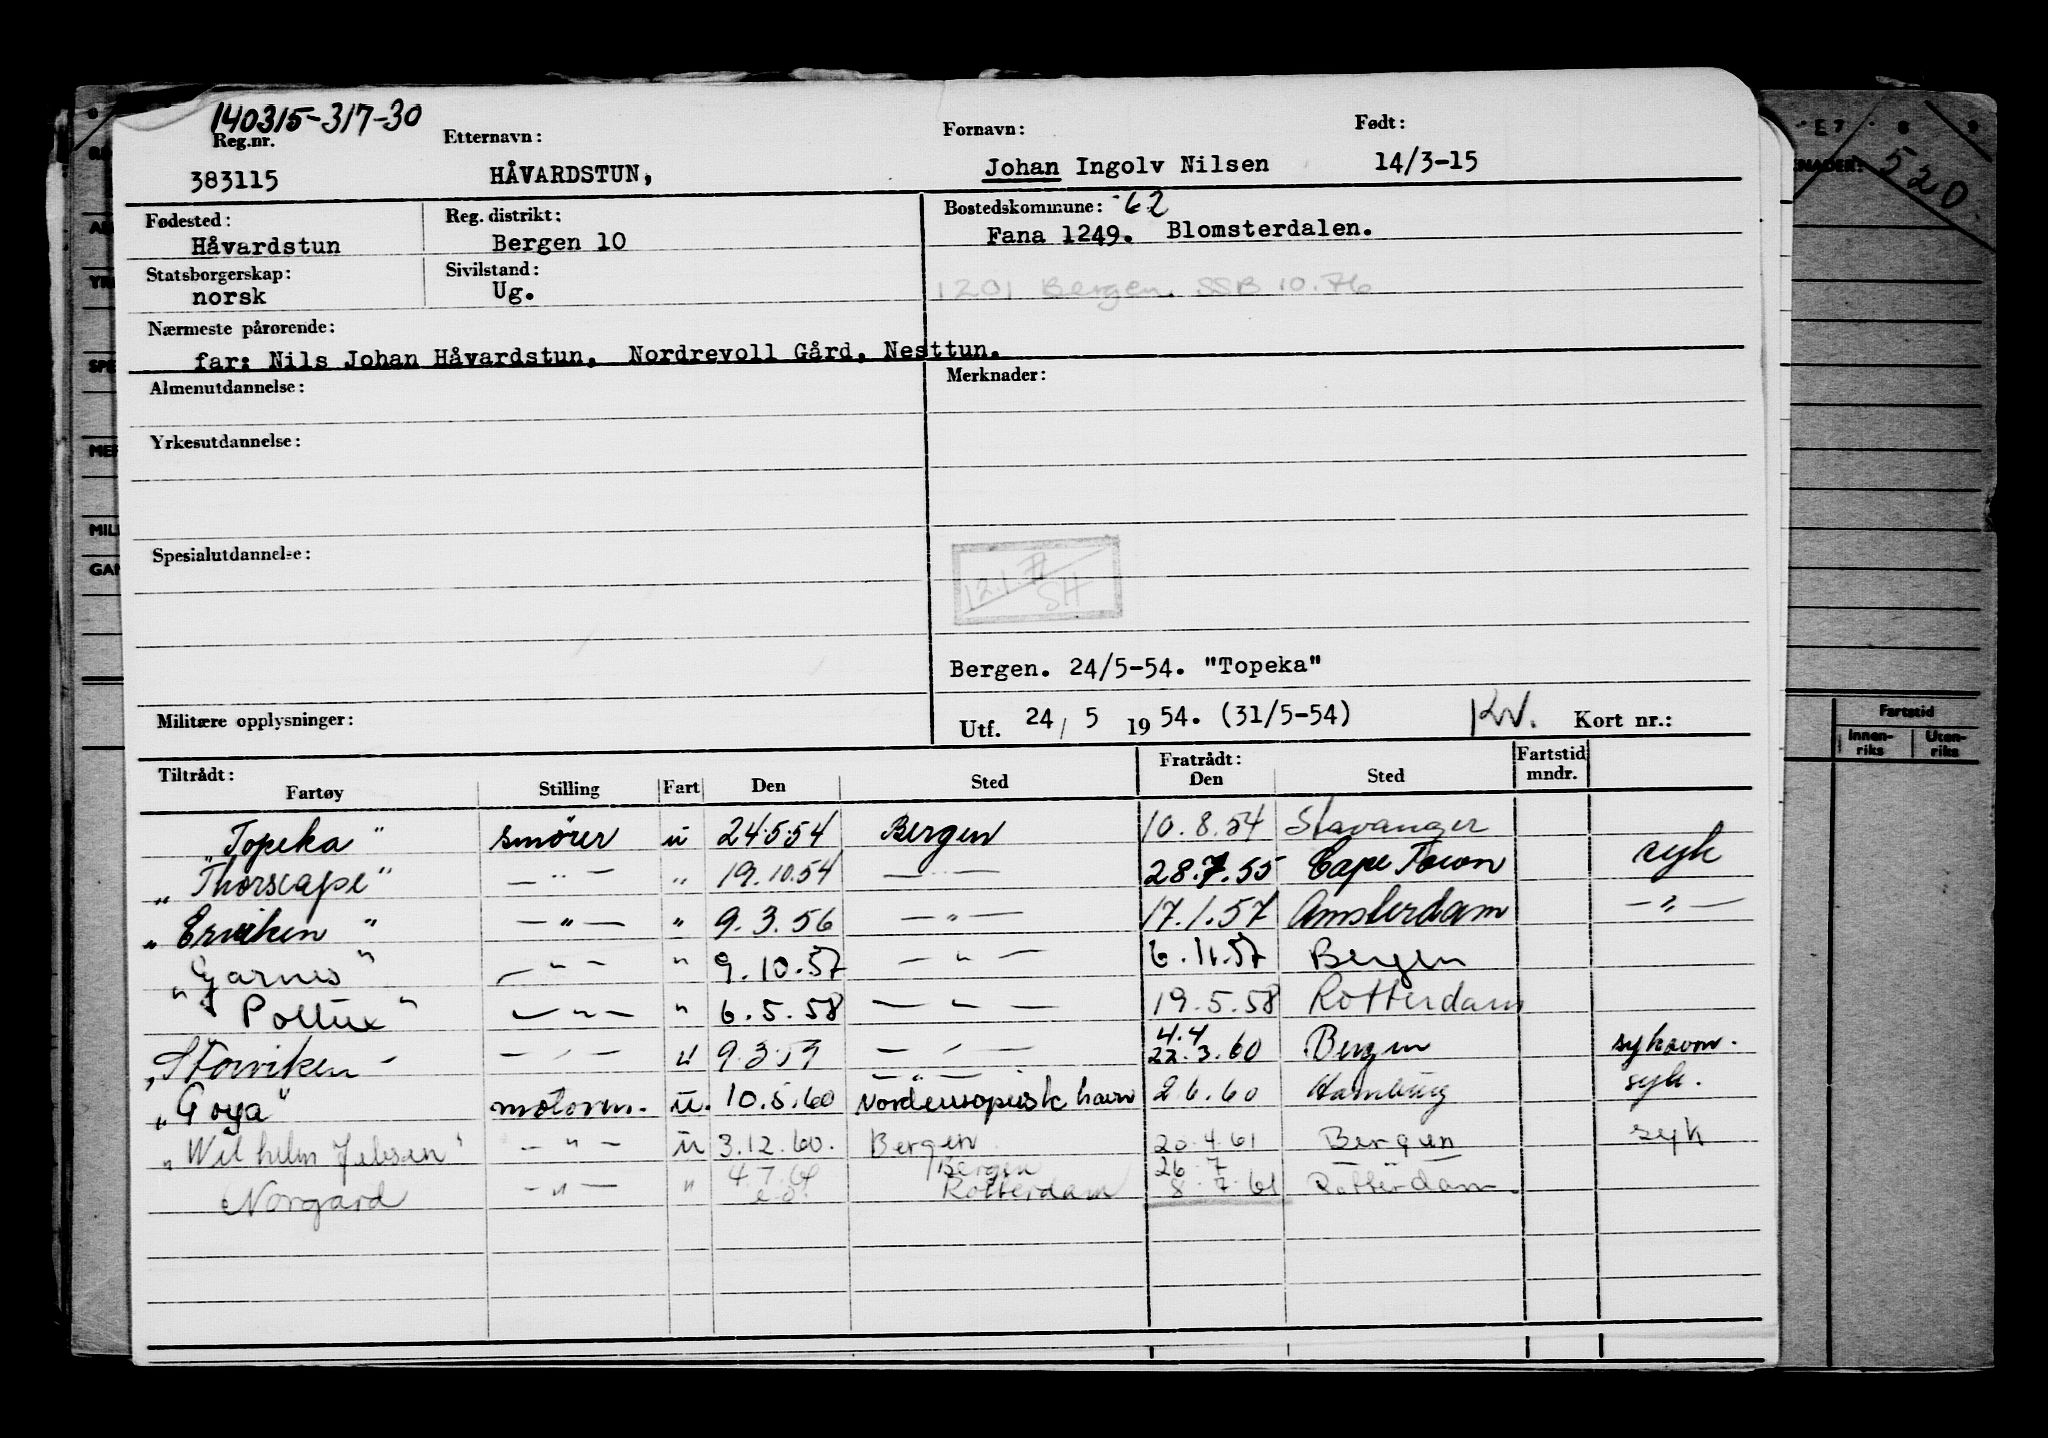 140315-317-30
Reg.nr. Etternavn: Fornavn: Født:
383115 HÅVARDSTUN, Johan Ingolv Nilsen 14/3-15
Fødested: Reg. distrikt: Bostedskommune: 62
Håvardstun Bergen 10 Fana 1249. Blomsterdalen.
Statsborgerskap: Sivilstand:
norsk Ug. 1201 Bergen. SSB 10.76
Nærmeste pårørende:
far: Nils Johan Håvardstun, Nordrevoll Gård, Nesttun.
Almenutdannelse: Merknader:
Yrkesutdannelse:
Spesialutdannelse:
SH
Bergen. 24/5-54. "Topeka"
Militære opplysninger: Utf. 24/ 5 19 54. (31/5-54) KW. Kort nr.:
Tiltrådt: Fratrådt: Fartstid
Fartøy Stilling Fart Den Sted Den Sted mndr.
"Topeka" smörer u 24.5.54 Bergen 10.8.54 Stavanger
"Thorscape" — " — " 19.10.54 — " — 28.7.55 Cape Town syk
"Erviken" — " — " 9.3.56 — " — 17.1.57 Amsterdam — " —
"Garnes" — " — " 9.10.57 — " — 6.11.57 Bergen
"Pollux" — " — " 6.5.58 — " — 19.5.58 Rotterdam
"Storviken — " — u 9.3.59 — " — 4.4 22.3.60 Bergen
"Goya" motorm. u. 10.5.60 Nordeuropeisk havn 2.6.60 Hamburg syk.
"Wilhelm Jebsen" — " — u 3.12.60. Bergen 20.4.61 Bergen syk
Norgard — " — " 4.7.61 Bergen Rotterdam 26.7 8.7.61 Rotterdam.
520
Fartstid
Innen-riks Uten-riks